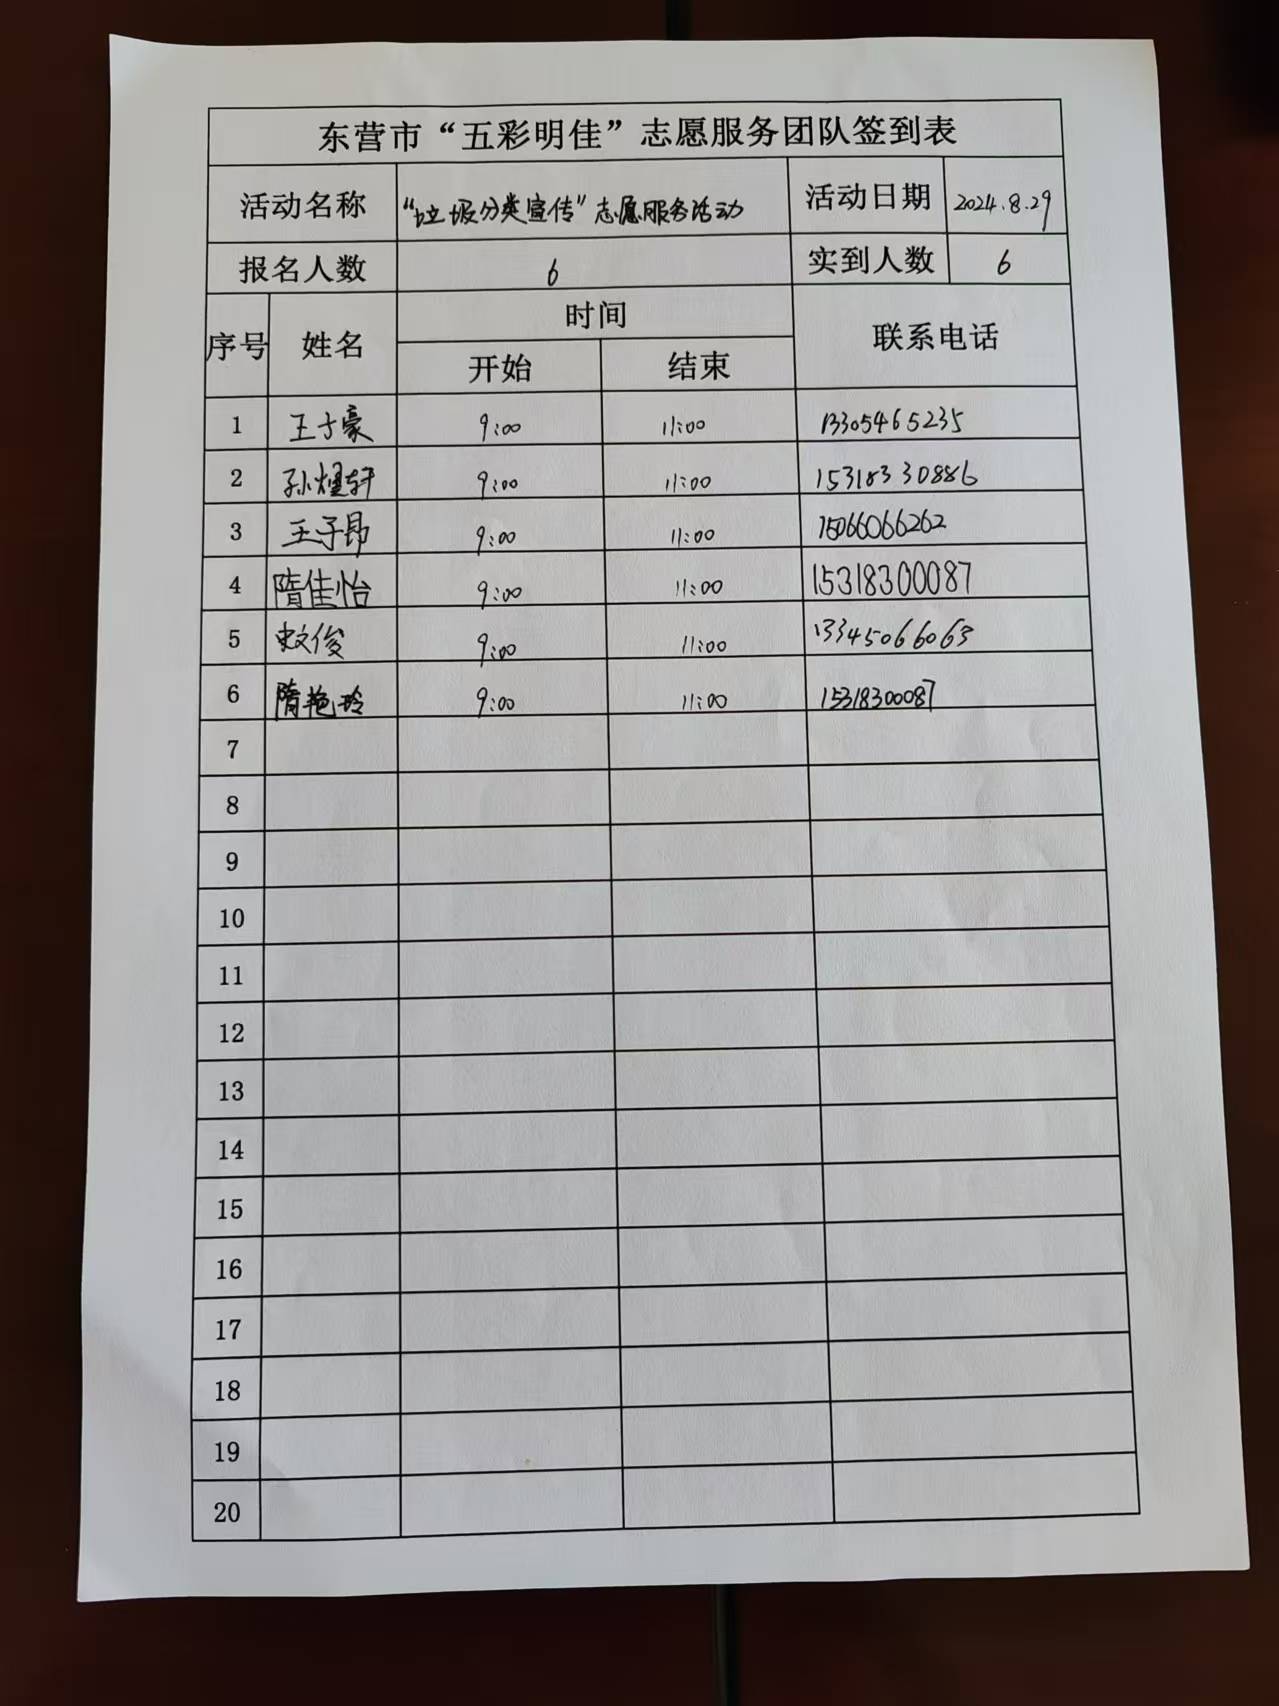 东营市“五彩明佳”志愿服务团队签到表
活动名称 “垃圾分类宣传”志愿服务活动 活动日期 2024.8.29
报名人数 6 实到人数 6
序号 姓名 时间 联系电话
开始 结束
1 王子豪 9:00 11:00 13305465235
2 孙煜轩 9:00 11:00 15318330886
3 王子昂 9:00 11:00 15066066262
4 隋佳怡 9:00 11:00 15318300087
5 俊 9:00 11:00 13345066063
6 隋艳玲 9:00 11:00 15318300087
7
8
9
10
11
12
13
14
15
16
17
18
19
20